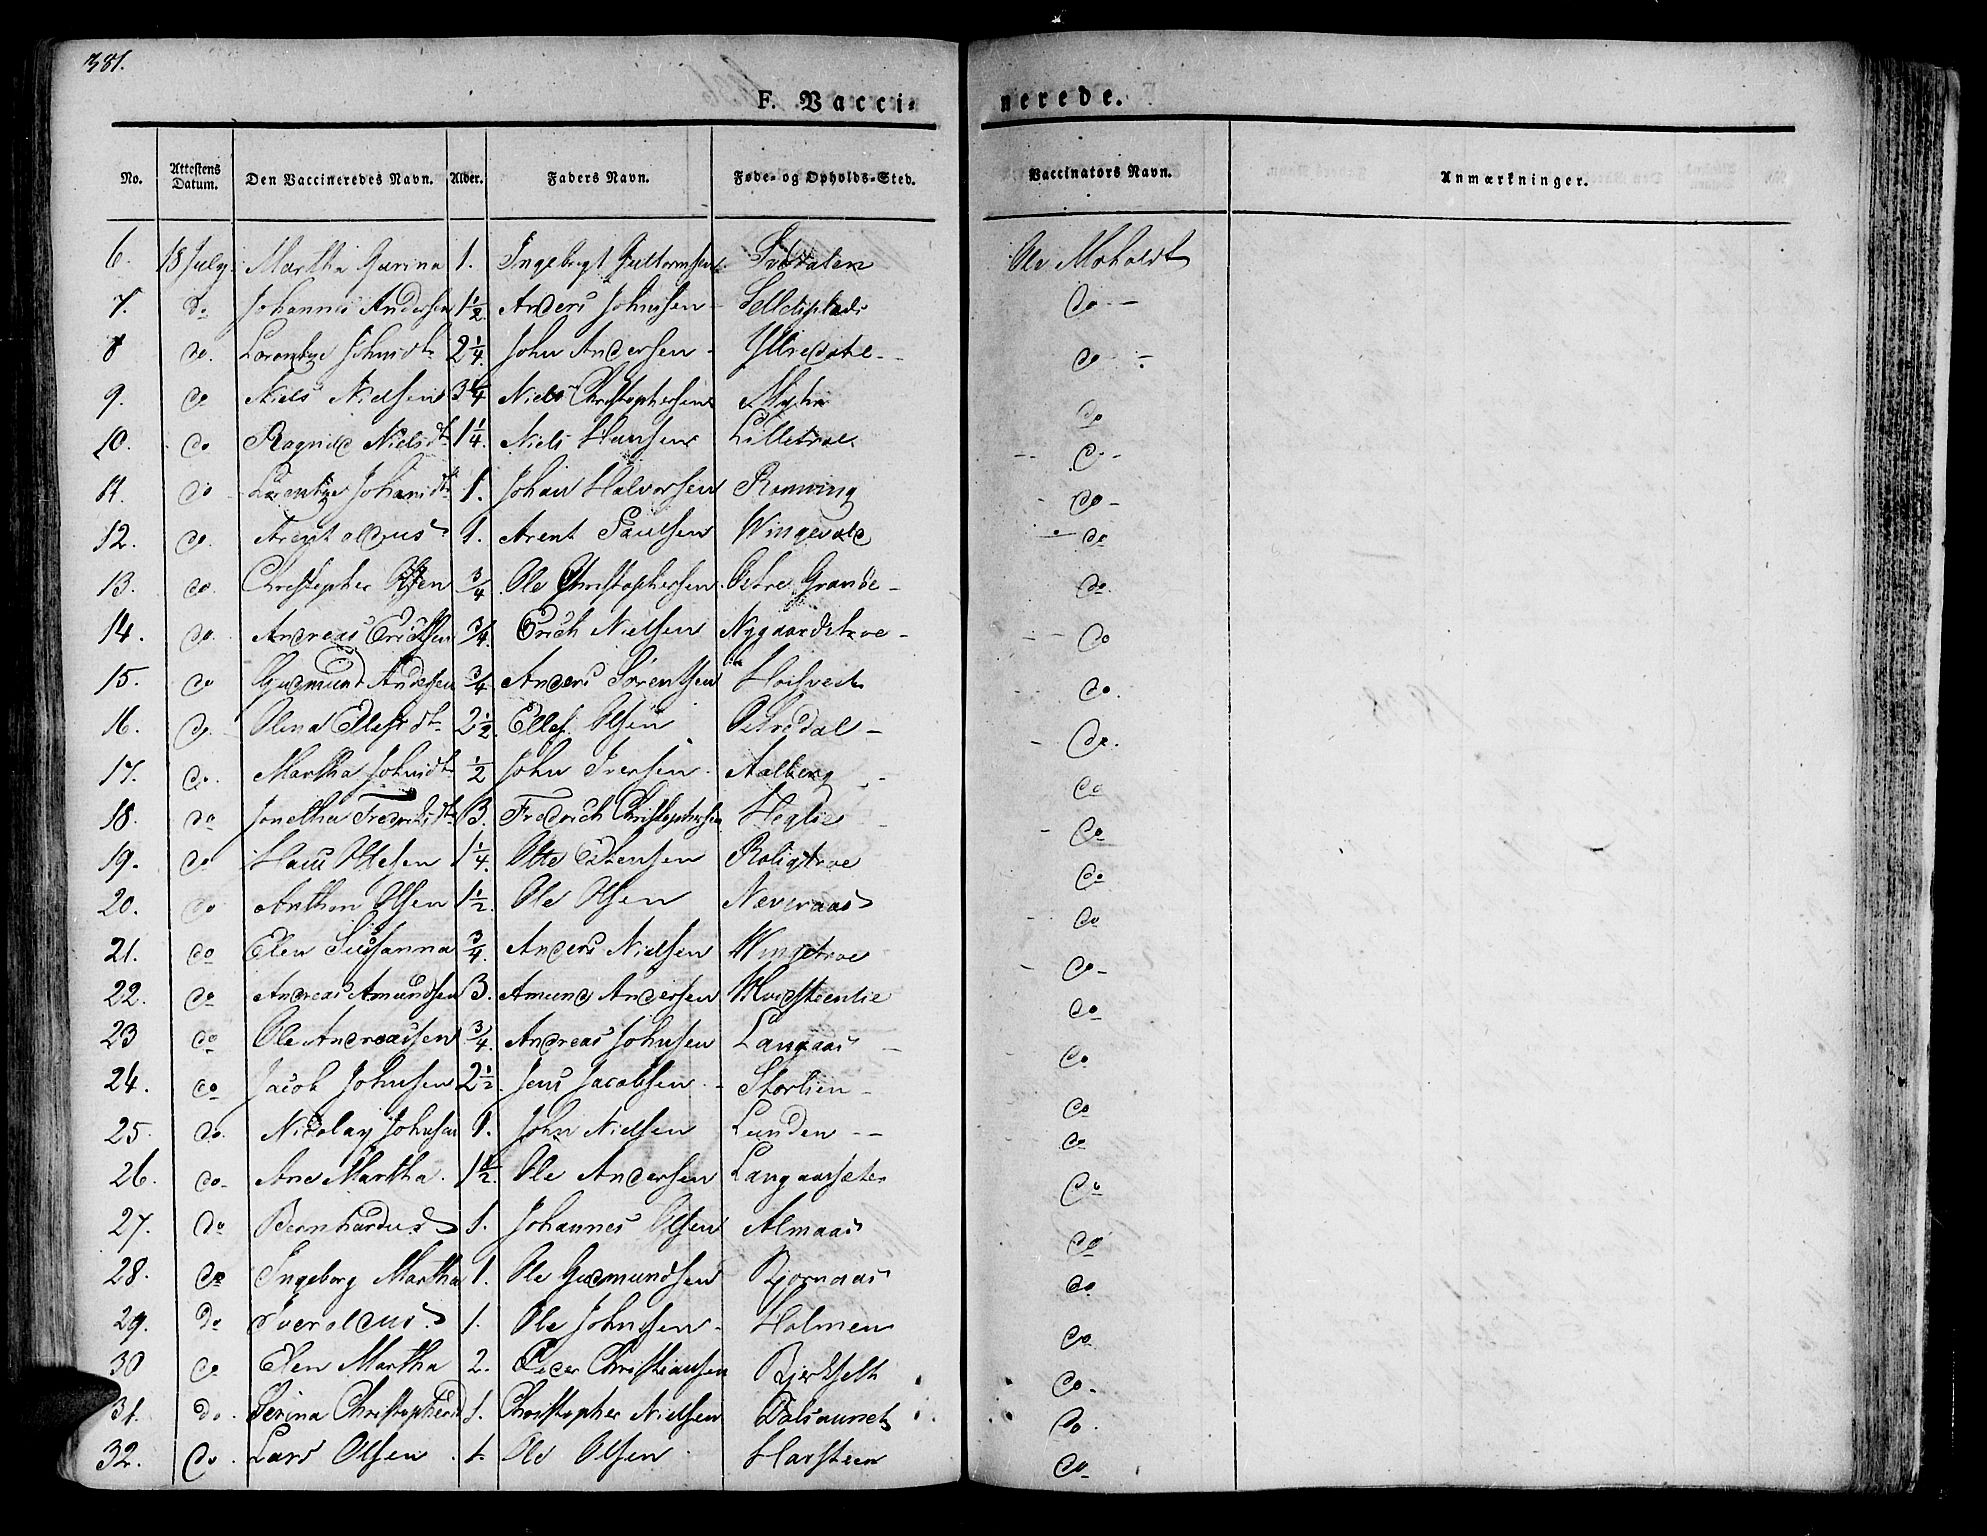 381.
F. Vacci-
nerede.
No. Attestens Datum. Den Vaccineredes Navn. Alder. Faders Navn. Føde- og Opholds-Sted. Vaccinators Navn. Anmærkninger.
6. 18 July Martha Gurina 1. Ingebrigt Guttormsen Ole Moholdt
7. do Johannes Andersen 1½ Anders Johnsen - do -
8 do. Lorentze Johnsdt. 2¼ John Andersen - do -
9. do Niels Nielsen 3¼ Niels Christophersen Myhr do
10. do Ragnild Nielsdt. 1¼ Niels Hansen Lilletroe do -
11. do Lorentze Johansdt. 1. Johan Halvorsen Ronning do -
12. do. Arent Aldus 1. Arent Paulsen do
13. do. Christopher Olsen ¾ Ole Christophersen Østre Grande - do.
14. do. Andreas Erichsen ¾ Erich Nielsen Nygaardstroe - do
15. do Gudmund Andersen ¾ Anders Sørensen do.
16. do. Olena Ellefsdt. 2½ Ellef Olsen do.
17. do. Martha Johnsdt. ½ John Iversen Aalberg do
18. do Jonetha Fredrichsdt. 3. Fredrich Christophersen Heglie do
19. do Hans Ottesen 1¼ Otte Estensen Roligtroe do
20. do Anthon Olsen 1½ Ole Olsen Næveraas do
21. do Elen Susanna ¾ Anders Nielsen Wingstroe do -
22. do Andreas Amundsen 3. Amund Andersen do
23 do Ole Andreassen ¾ Andreas Johnsen Langaas do
24. do Jacob Johnsen 2½ Jens Jacobsen Storlien - do
25. do. Nicolay Johnsen 1. John Nielsen Lunden - do
26. do - Ane Martha 1½ Ole Andersen Langaassæter do
27. do Bernhardus 1. Johannes Olsen Almaas do
28. do Ingeborg Martha 1. Ole Gudmundsen Bjørnaas do
29. do Iver Aldus 1. Ole Johnsen Holmen do
30 do Elen Martha 2. Peder Christiansen do -
31. do. Serina Christophersd. 1. Christopher Nielsen Dalsaunet do.
32. do. Lars Olsen 1. Ole Olsen Harsteen do